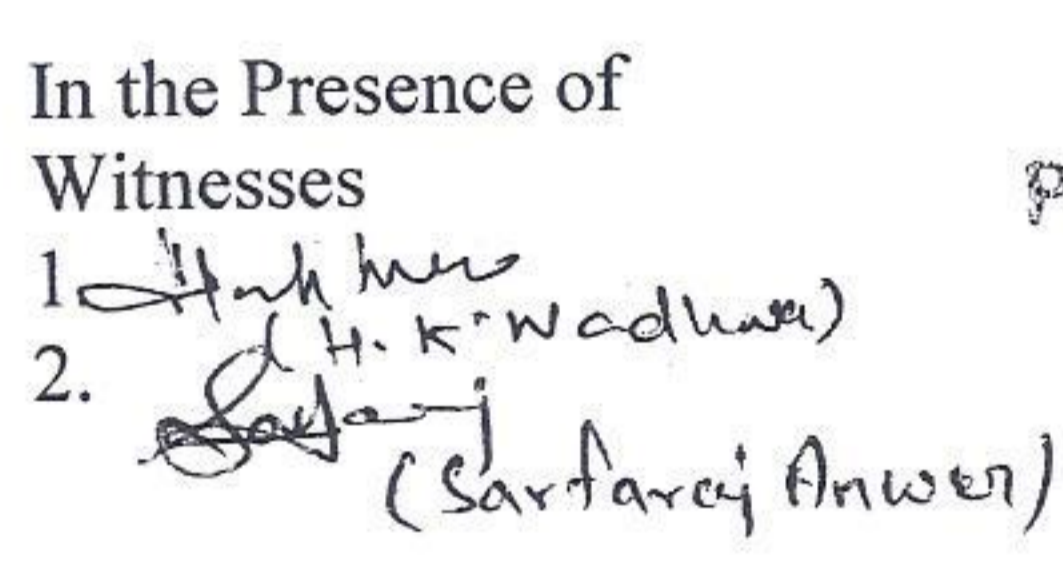 In the Presence of
Witnesses
1
(H. K. Wadhwa)
2.
(Sarfaraj Anwer)